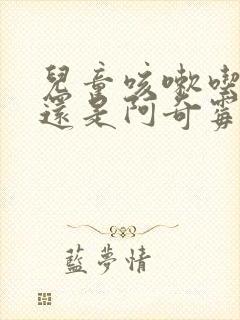 兒童咳嗽喫
還是阿奇霉
藍夢情